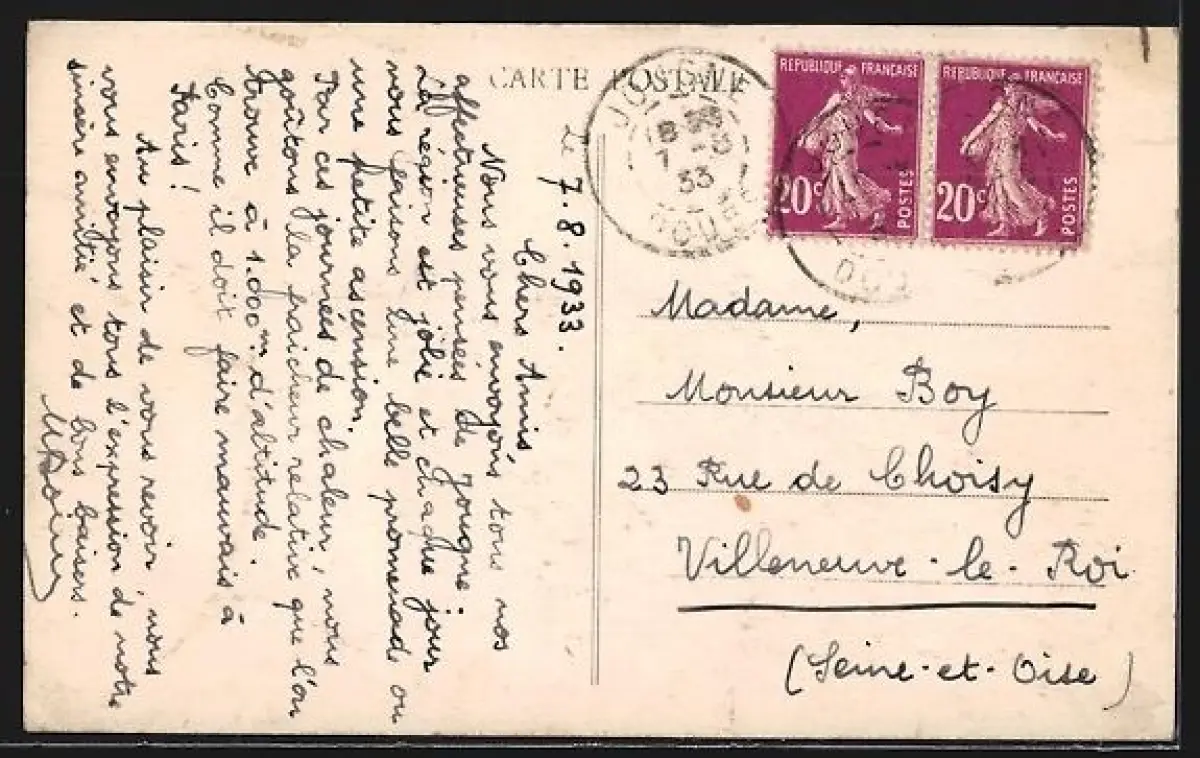 CARTE POSTALE
REPUBLIQUE FRANÇAISE
20c
POSTES
REPUBLIQUE FRANÇAISE
20c
POSTES
JOUGNE
33
DOUBS
DOU
Le 7.8.1933.
Chers Amis
Nous vous envoyons tous nos
affectueuses pensées de Jougne.
La région est jolie et chaque jour
nous faisons une belle promenade ou
une petite ascension.
Par ces journées de chaleur, nous
goûtons la fraicheur relative que l'on
trouve à 1.000m d'altitude.
Comme il doit faire mauvais à
Paris!
Au plaisir de vous revoir, nous
vous envoyons tous l'expression de notre
sincère amitié et de bons baisers.
Madame,
Monsieur Boy
23 Rue de Choisy
Villeneuve-le-Roi
(Seine-et-Oise)